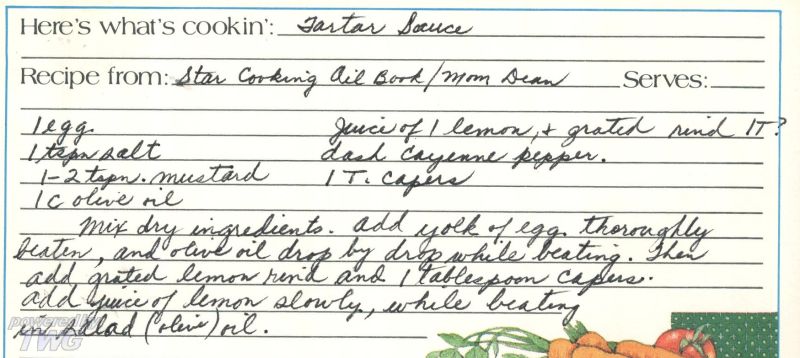 Here's what's cookin': Tartar Sauce
Recipe from: Star Cooking Oil Book/Mom Dean Serves:
1 egg Juice of 1 lemon, & grated rind 1T?
1 tspn salt dash Cayenne pepper.
1-2 tspn. mustard 1 T. capers
1 c olive oil
Mix dry ingredients. Add yolk of egg thoroughly
beaten, and olive oil drop by drop while beating. Then
add grated lemon rind and 1 tablespoon capers.
Add juice of lemon slowly, while beating
in salad (olive) oil.
powered by
TWG